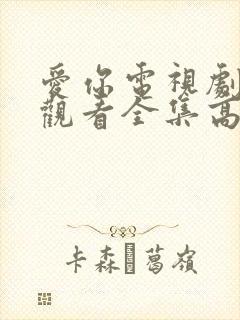 愛你電視劇
觀看全集高
卡森 葛嶺